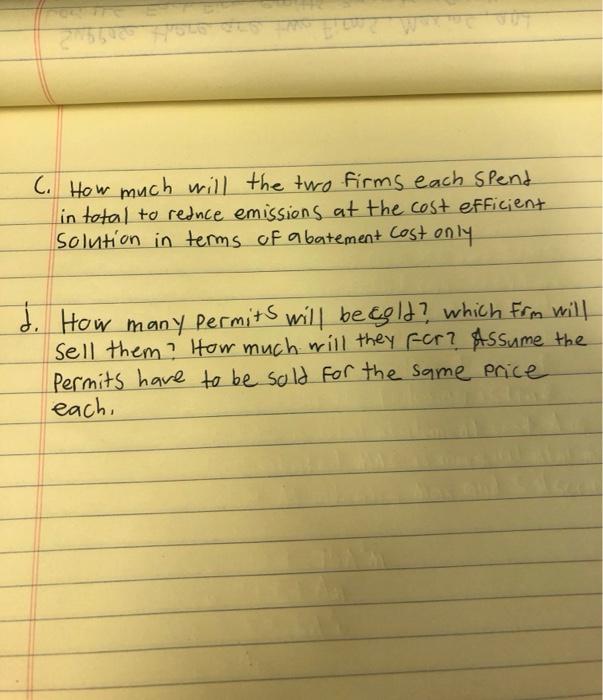 C. How much will the two firms each spend
in total to reduce emissions at the cost efficient
solution in terms of abatement cost only
d. How many permits will be sold? which firm will
sell them? How much will they for? Assume the
permits have to be sold for the same price
each.